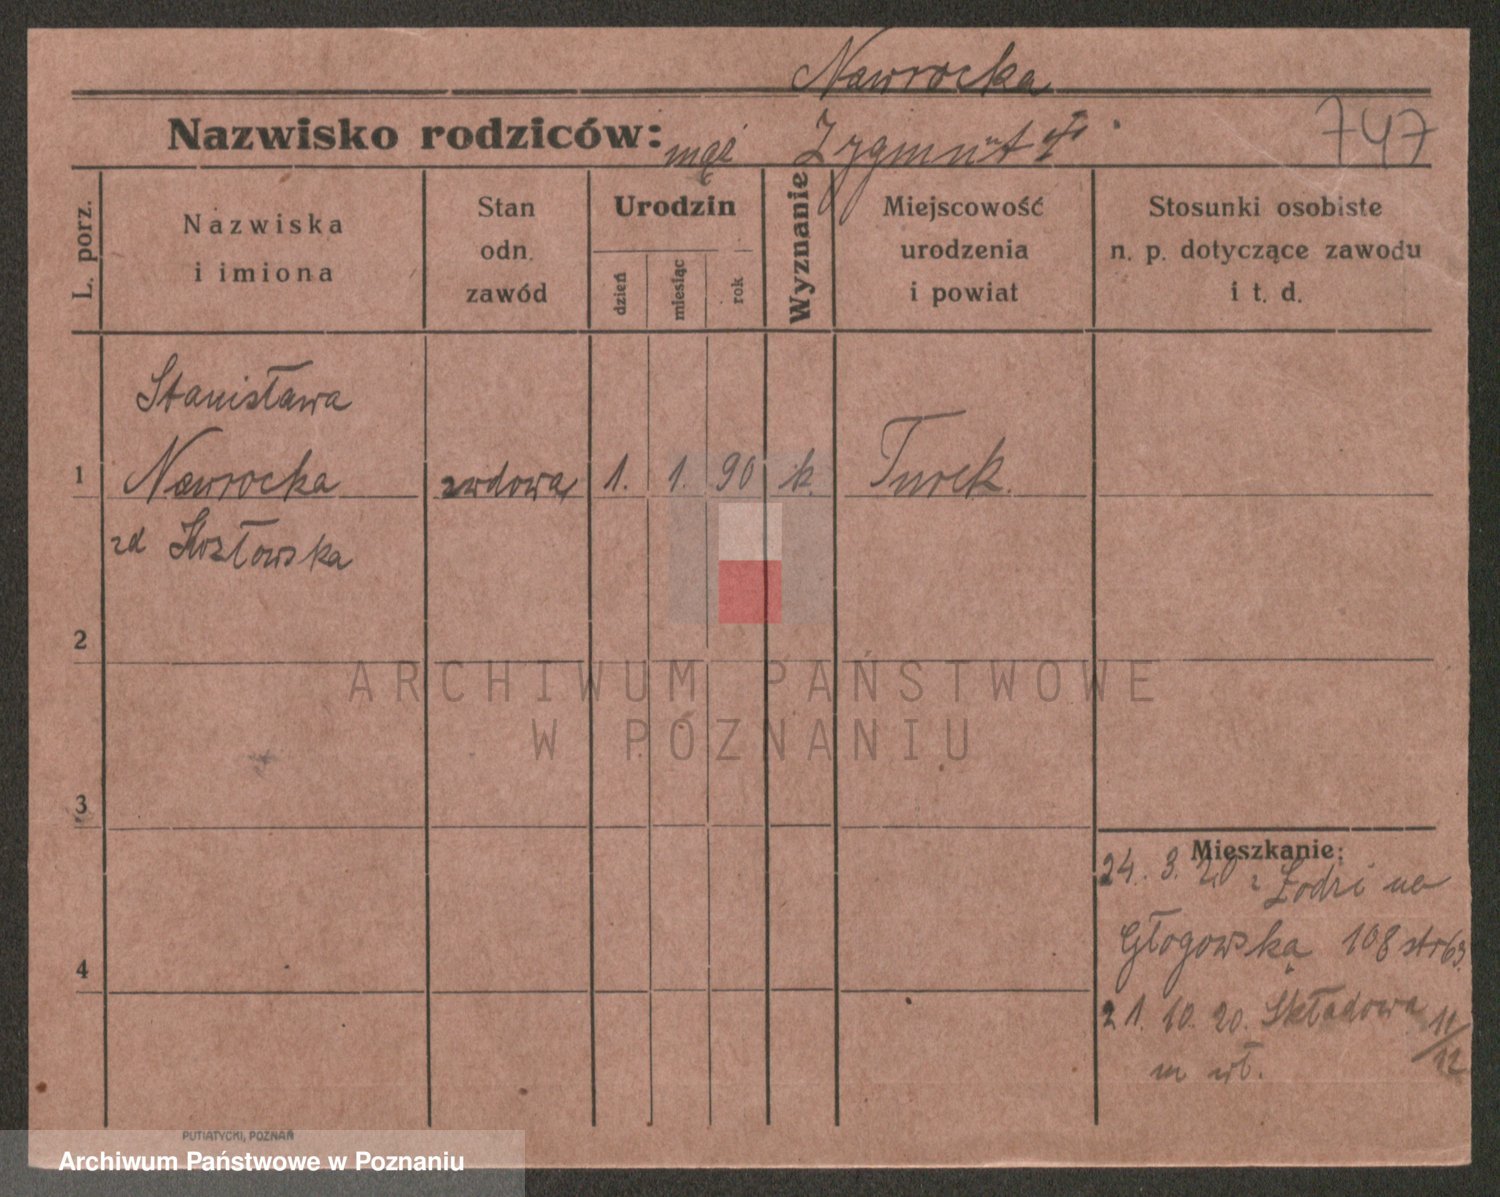 Nawrocka
Nazwisko rodziców: mąż Zygmunt † 747
L. porz.
Nazwiska
i imiona
Stan
odn.
zawód
Urodzin
dzień
miesiąc
rok
Wyznanie
Miejscowość
urodzenia
i powiat
Stosunki osobiste
n. p. dotyczące zawodu
i t. d.
Stanisława
1 Nawrocka wdowa 1. 1. 90 k. Turek.
zd Kozłowska
2
3
4
Mieszkanie:
24. 3. 20 z Łodzi na
Głogowską 108 str 63.
21. 10. 20. Składowa 11/12
m wł.
ARCHIWUM PAŃSTWOWE
W POZNANIU
PUTIATYCKI, POZNAŃ
Archiwum Państwowe w Poznaniu